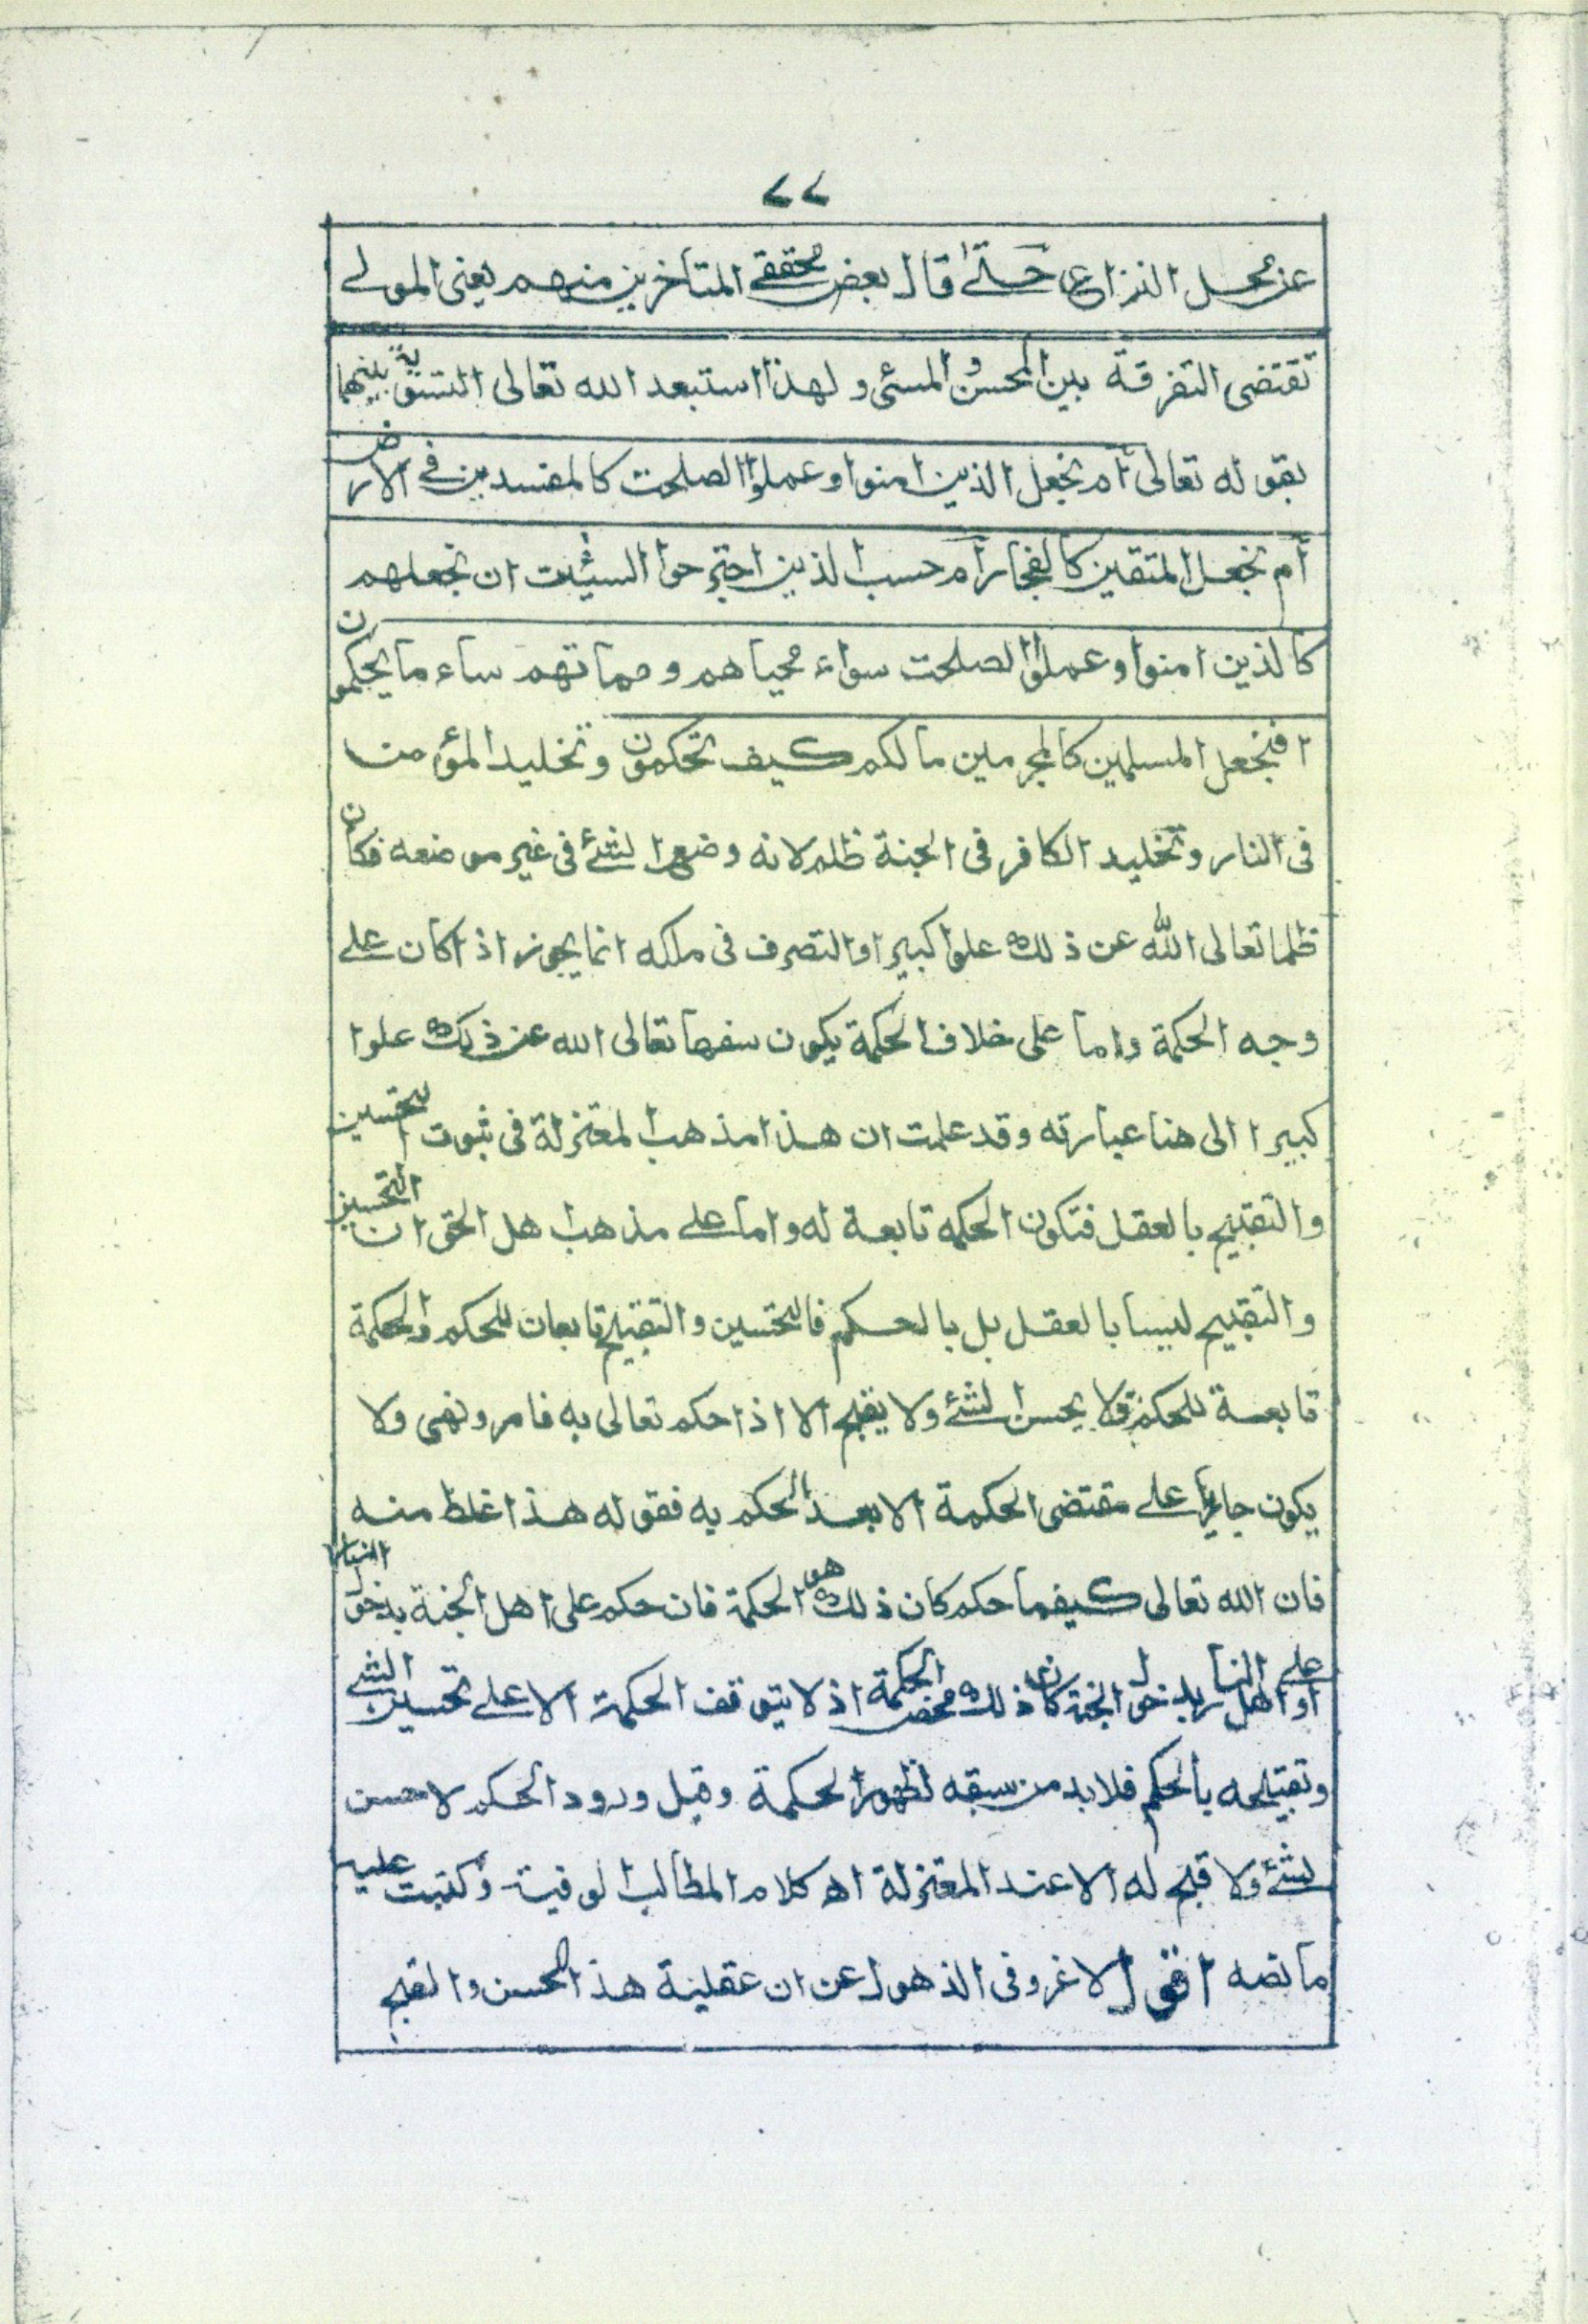 ٧٧
عن محل النزاع حتى قال بعض محققي المتأخرين منهم يعنى المولے
تقتضى التفرقة بين المحسن والمسئ ولهذا استبعد الله تعالى التسوية بينهما
بقوله تعالى أم نجعل الذين امنوا وعملوا الصلحت كالمفسدين فى الارض
أم نجعل المتقين كالفجار أم حسب الذين اجترحوا السيئت ان نجعلهم
كالذين امنوا وعملوا الصلحت سواء محياهم ومماتهم ساء ما يحكمون
افنجعل المسلمين كالمجرمين مالكم كيف تحكمون وتخليد المؤمن
فى النار وتخليد الكافر فى الجنة ظلم لانه وضع الشئ فى غير موضعه فكان
ظلما تعالى الله عن ذلك علوا كبيرا والتصرف فى ملكه انما يجوز اذا كان على
وجه الحكمة واما على خلاف الحكمة يكون سفها تعالى الله عن ذلك علوا
كبيرا الى هنا عبارته وقد علمت ان هذا مذهب المعتزلة فى ثبوت التحسين
والتقبيح بالعقل فتكون الحكمه تابعة له واما على مذهب اهل الحق ان التحسين
والتقبيح ليسا بالعقل بل بالحكم فالتحسين والتقبيح تابعان للحكم والحكمة
تابعة للحكم فلا يحسن الشئ ولا يقبح الا اذا حكم تعالى به فامر ونهى ولا
يكون جاريا على مقتضى الحكمة الا بعد الحكم به فقوله هذا غلط منه
فان الله تعالى كيفما حكم كان ذلك هو الحكمة فان حكم على اهل الجنة بدخول النار
او على اهل النار بدخول الجنة كان ذلك محض الحكمة اذ لا يتوقف الحكمة الا على تحسين الشئ
وتقبيحه بالحكم فلابد من سبقه لظهور الحكمة وقبل ورود الحكم لا حسن
لشئ ولا قبح له الا عند المعتزلة اه كلام المطالب الوفية وكتبت عليه
ما نصه اقول لا غرو فى الذهول عن ان عقلية هذا الحسن والقبح